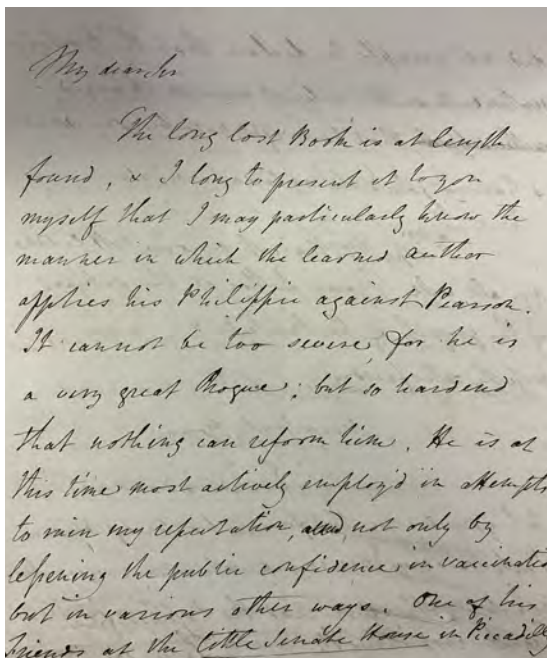 My dear Sir
The long lost Book is at length
found, & I long to present it to you
myself that I may particularly know the
manner in which the learned author
applies his Philippic against Pearson.
It cannot be too severe, for he is
a very great Rogue; but so hardend
that nothing can reform him. He is at
this time most actively employ'd in attempts
to ruin my reputation, and not only by
lessening the public confidence in vaccinatio
but in various other ways. One of his
friends at the little Senate House in Piccadilly